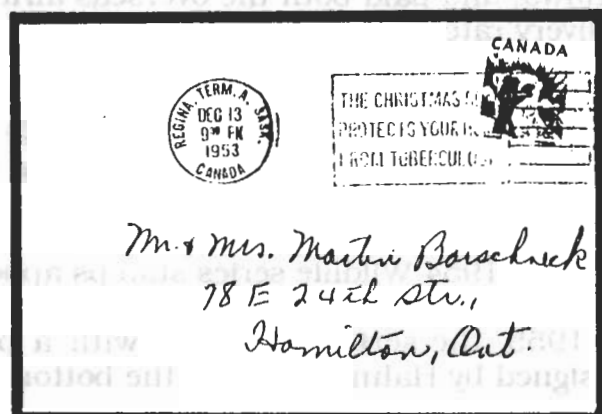 CANADA
REGINA, TERM. A. SASK.
DEC 13
PM
1953
CANADA
THE CHRISTMAS
PROTECTS YOUR
FROM TUBERCULOSIS
Mr. & Mrs. Martin Borschneck
78 E 24th Str.,
Hamilton, Ont.